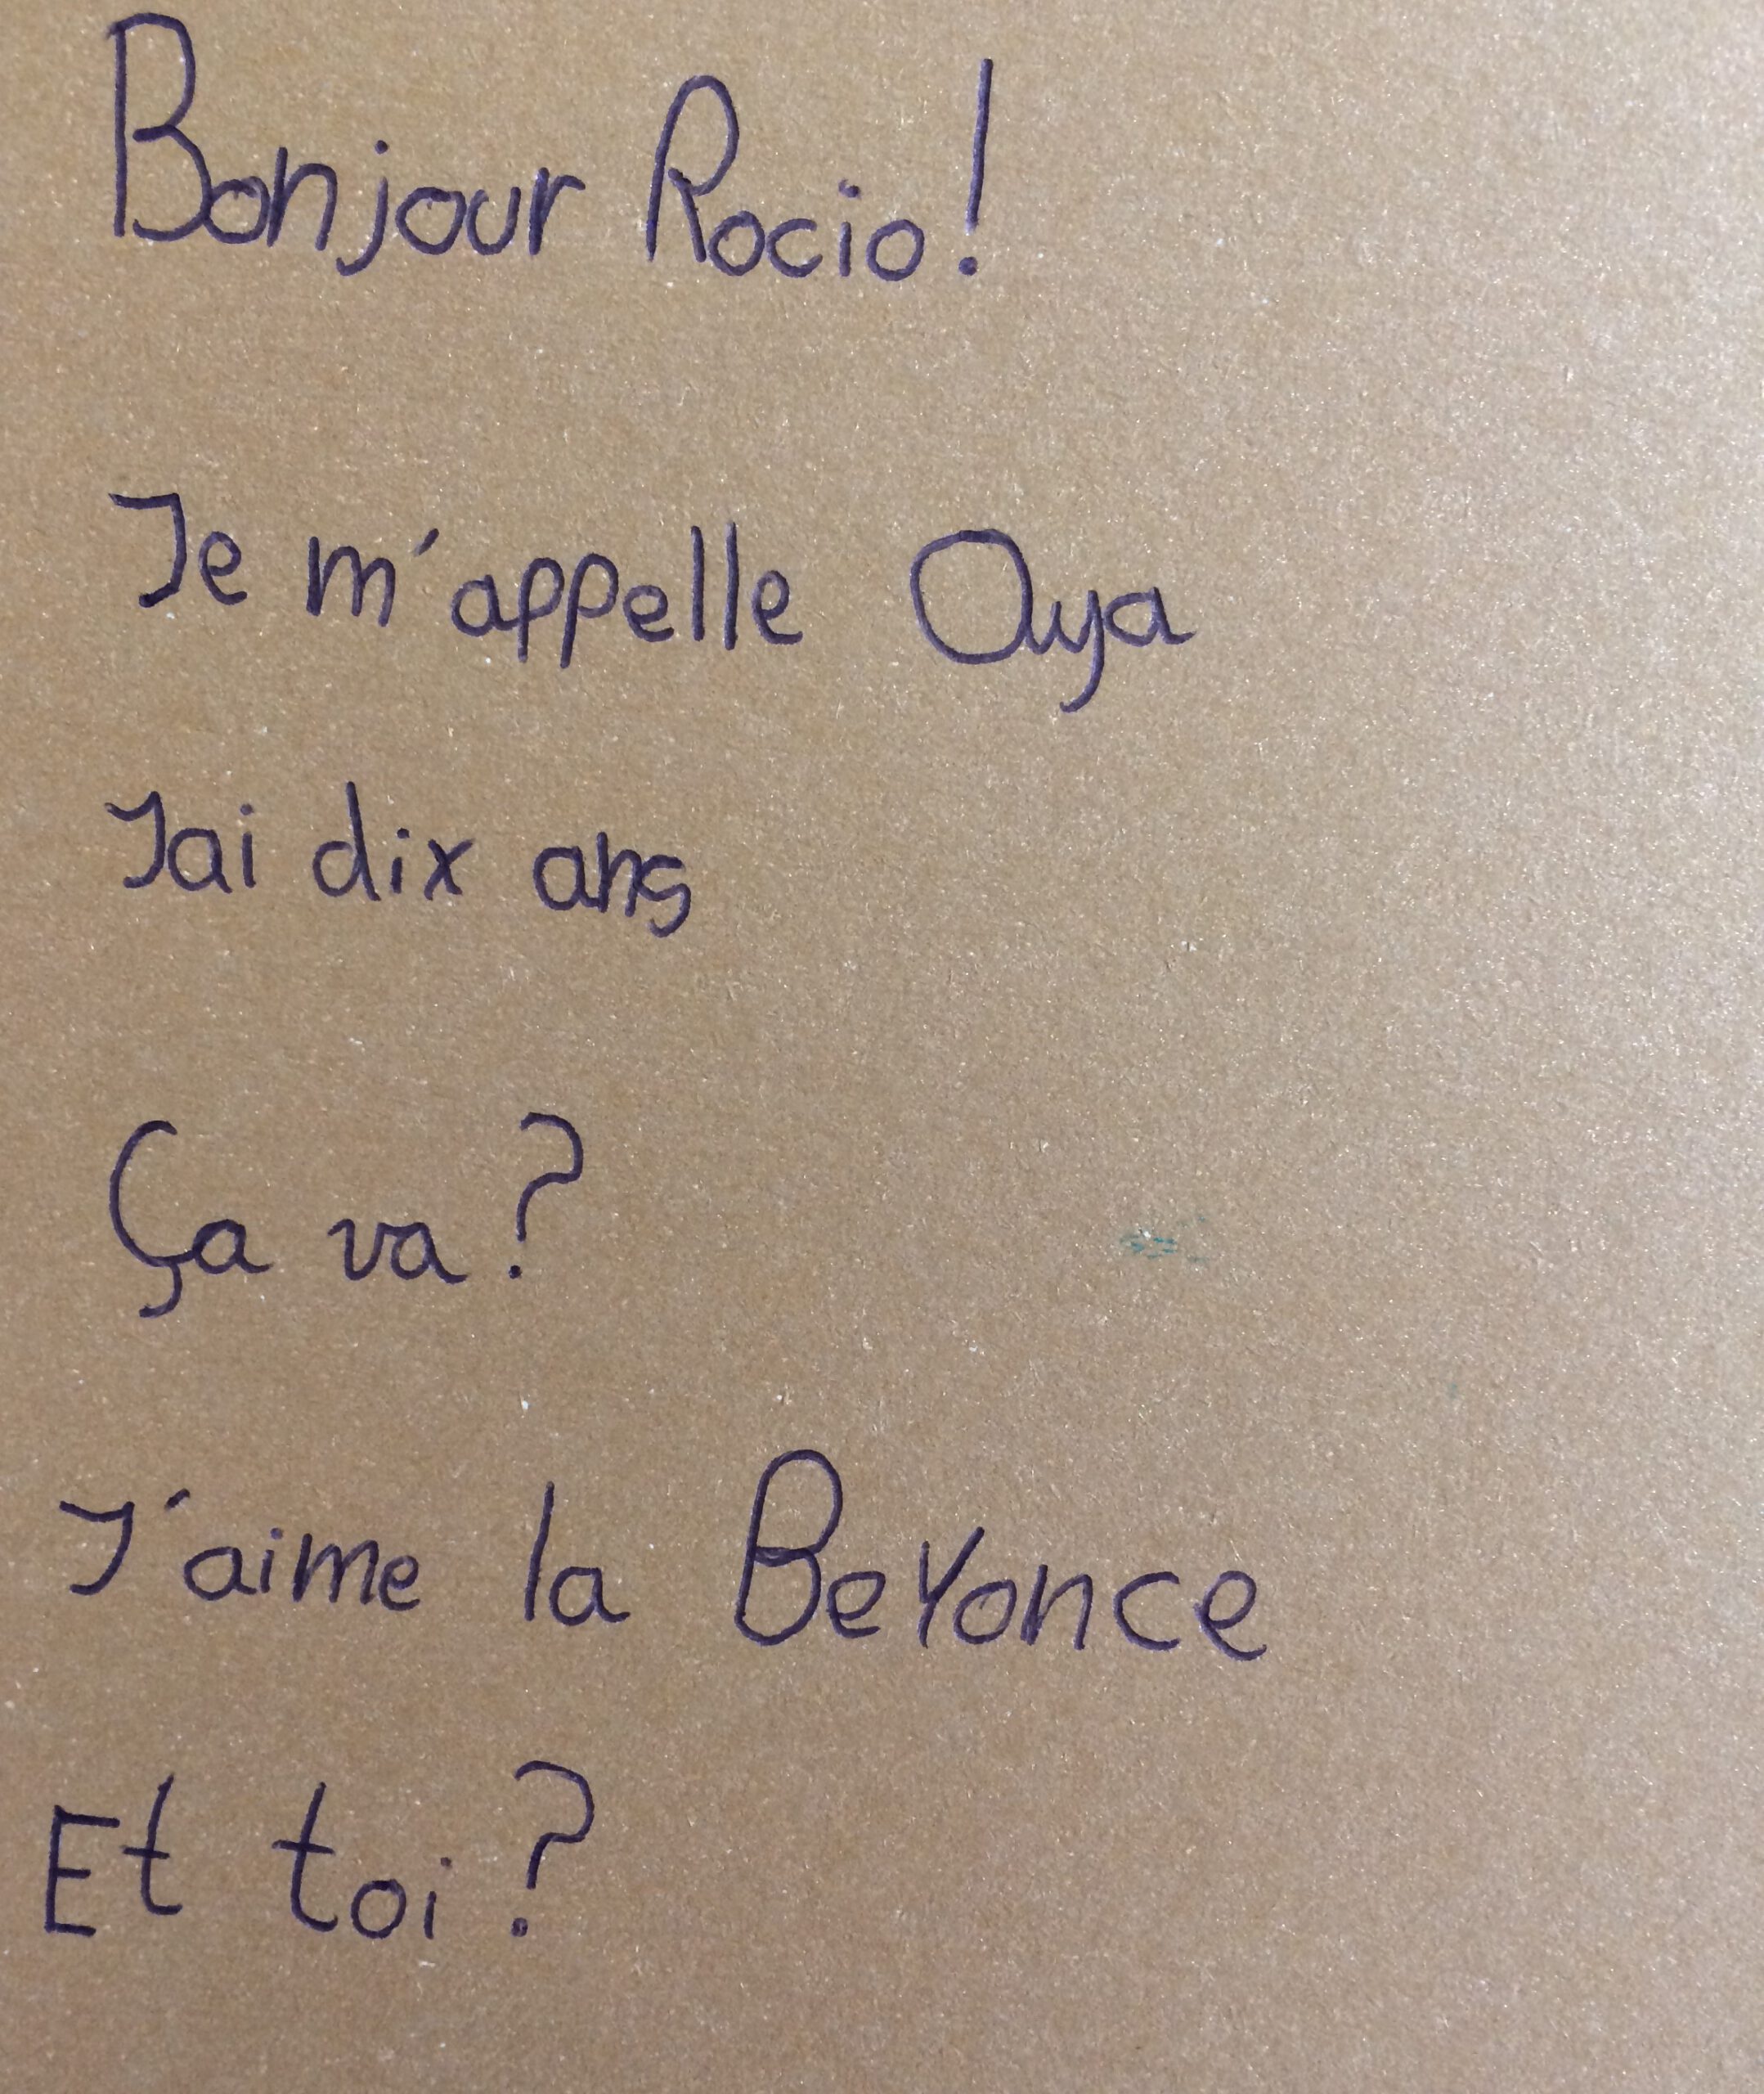 Bonjour Rocio!
Je m'appelle Aya
Jai dix ans
Ça va?
J'aime la BeYonce
Et toi?